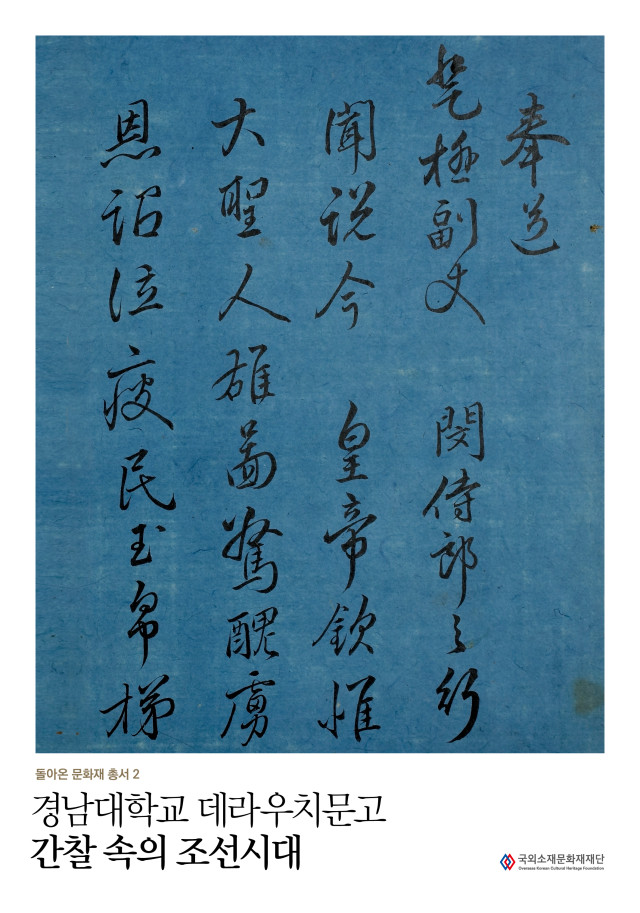 奉送
登極副使 閔侍郎之行
聞説今 皇帝欽惟
大聖人雄啚驚醜虜
恩詔泣疲民玉帛梯
돌아온 문화재 총서 2
경남대학교 데라우치문고
간찰 속의 조선시대
국외소재문화재재단
Overseas Korean Cultural Heritage Foundation